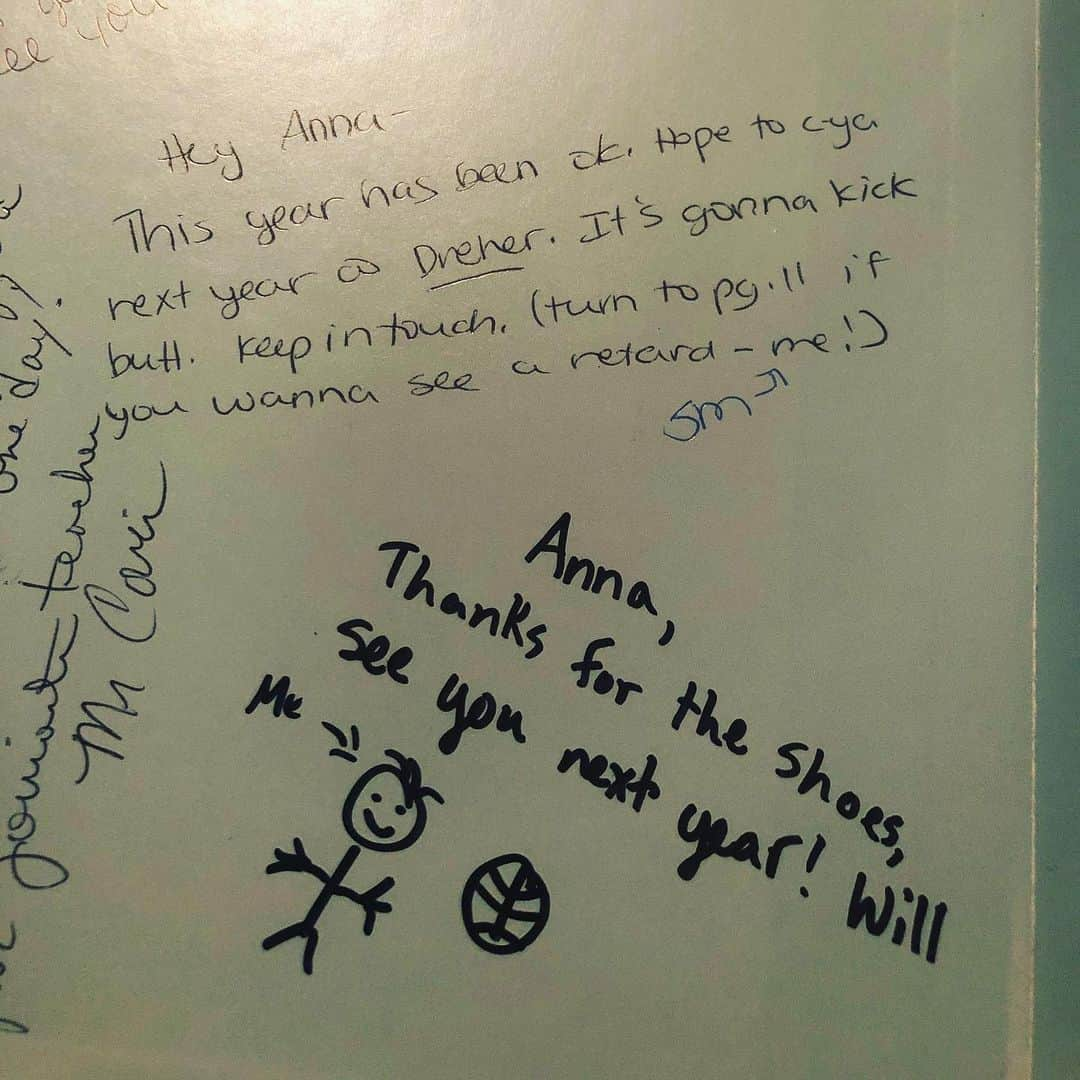 see you
Hey Anna-
This year has been ok. Hope to c-ya
next year @ Dreher. It's gonna kick
butt. Keep in touch. (turn to pg. 11 if
you wanna see a retard - me!)
SM
one day.
favorite teacher
Anna,
Thanks for the shoes,
see you next year! Will
Me